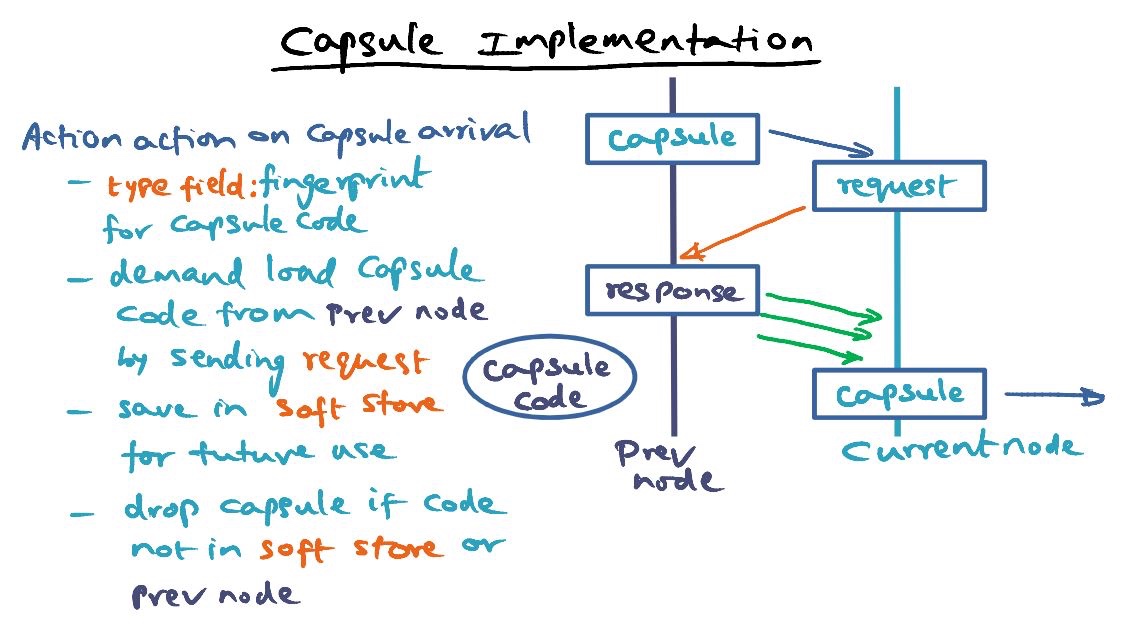 Capsule Implementation
Action action on Capsule arrival
- type field: fingerprint
for capsule code
- demand load capsule
code from prev node
by sending request
- save in soft store
for future use
- drop capsule if code
not in soft store or
prev node
capsule
request
response
capsule
code
capsule
Prev
node
Current node